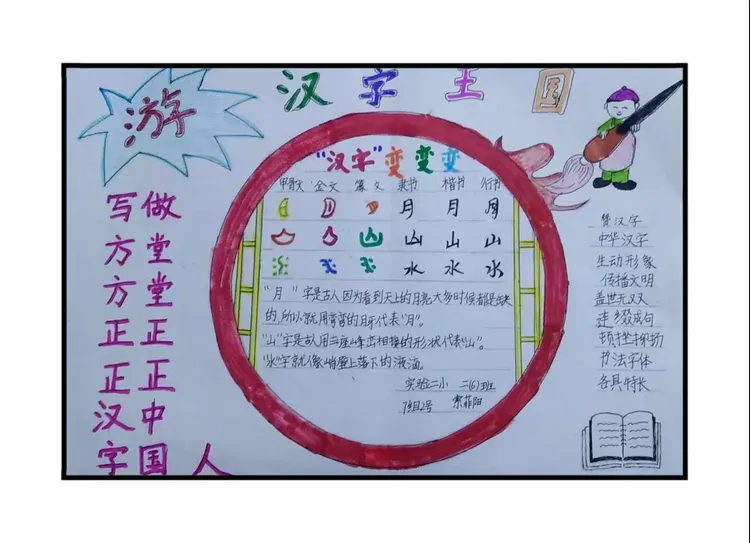 游汉字王国
写方方正正汉字
做堂堂正正中国人
"汉字"变变变
甲骨文 金文 篆文 隶书 楷书 行书
月 月 月
山 山 山
水 水 水
"月"字是古人因为看到天上的月亮大多时候都是缺
的,所以就用弯弯的月牙代表"月"。
"山"字是古人用三座峰峦相接的形状代表"山"。
"水"字就像峭壁上落下的液滴。
实验二小 二(6)班
7组2号
赞汉字
中华汉字
生动形象
传播文明
盖世无双
连缀成句
顿挫抑扬
书法字体
各具特长